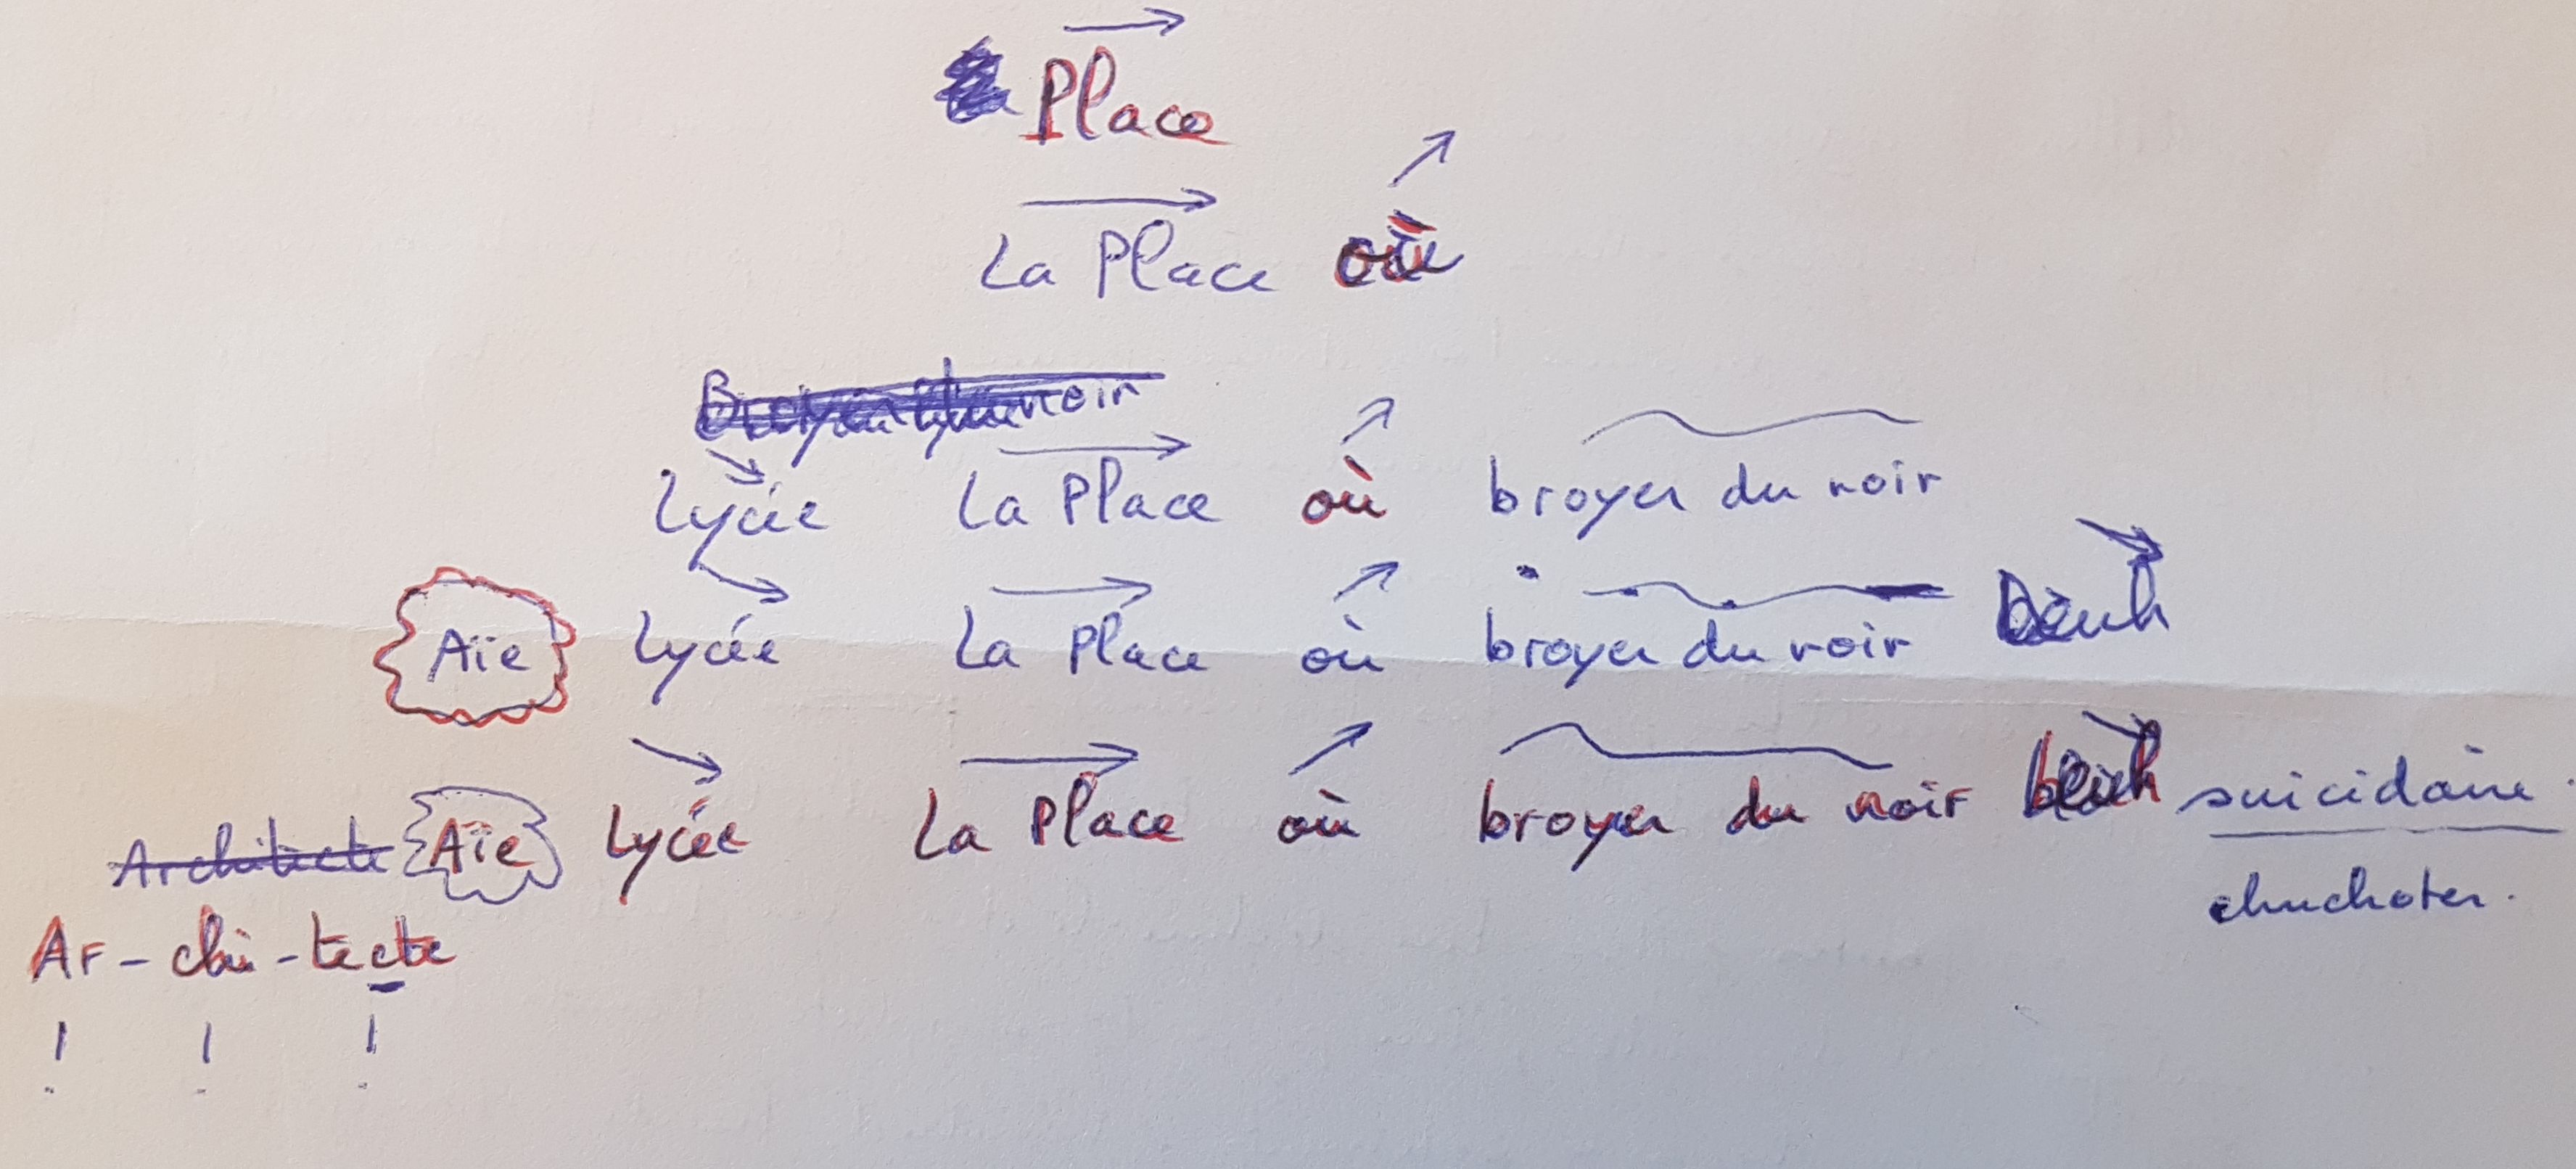 Place
La Place où
Broyer du noir
Lycée La Place où broyer du noir
Aïe Lycée La Place où broyer du noir beuh
Architecte Aïe Lycée La Place où broyer du noir beuh suicidaire.
chuchoter.
Ar-chi-tecte
! ! !